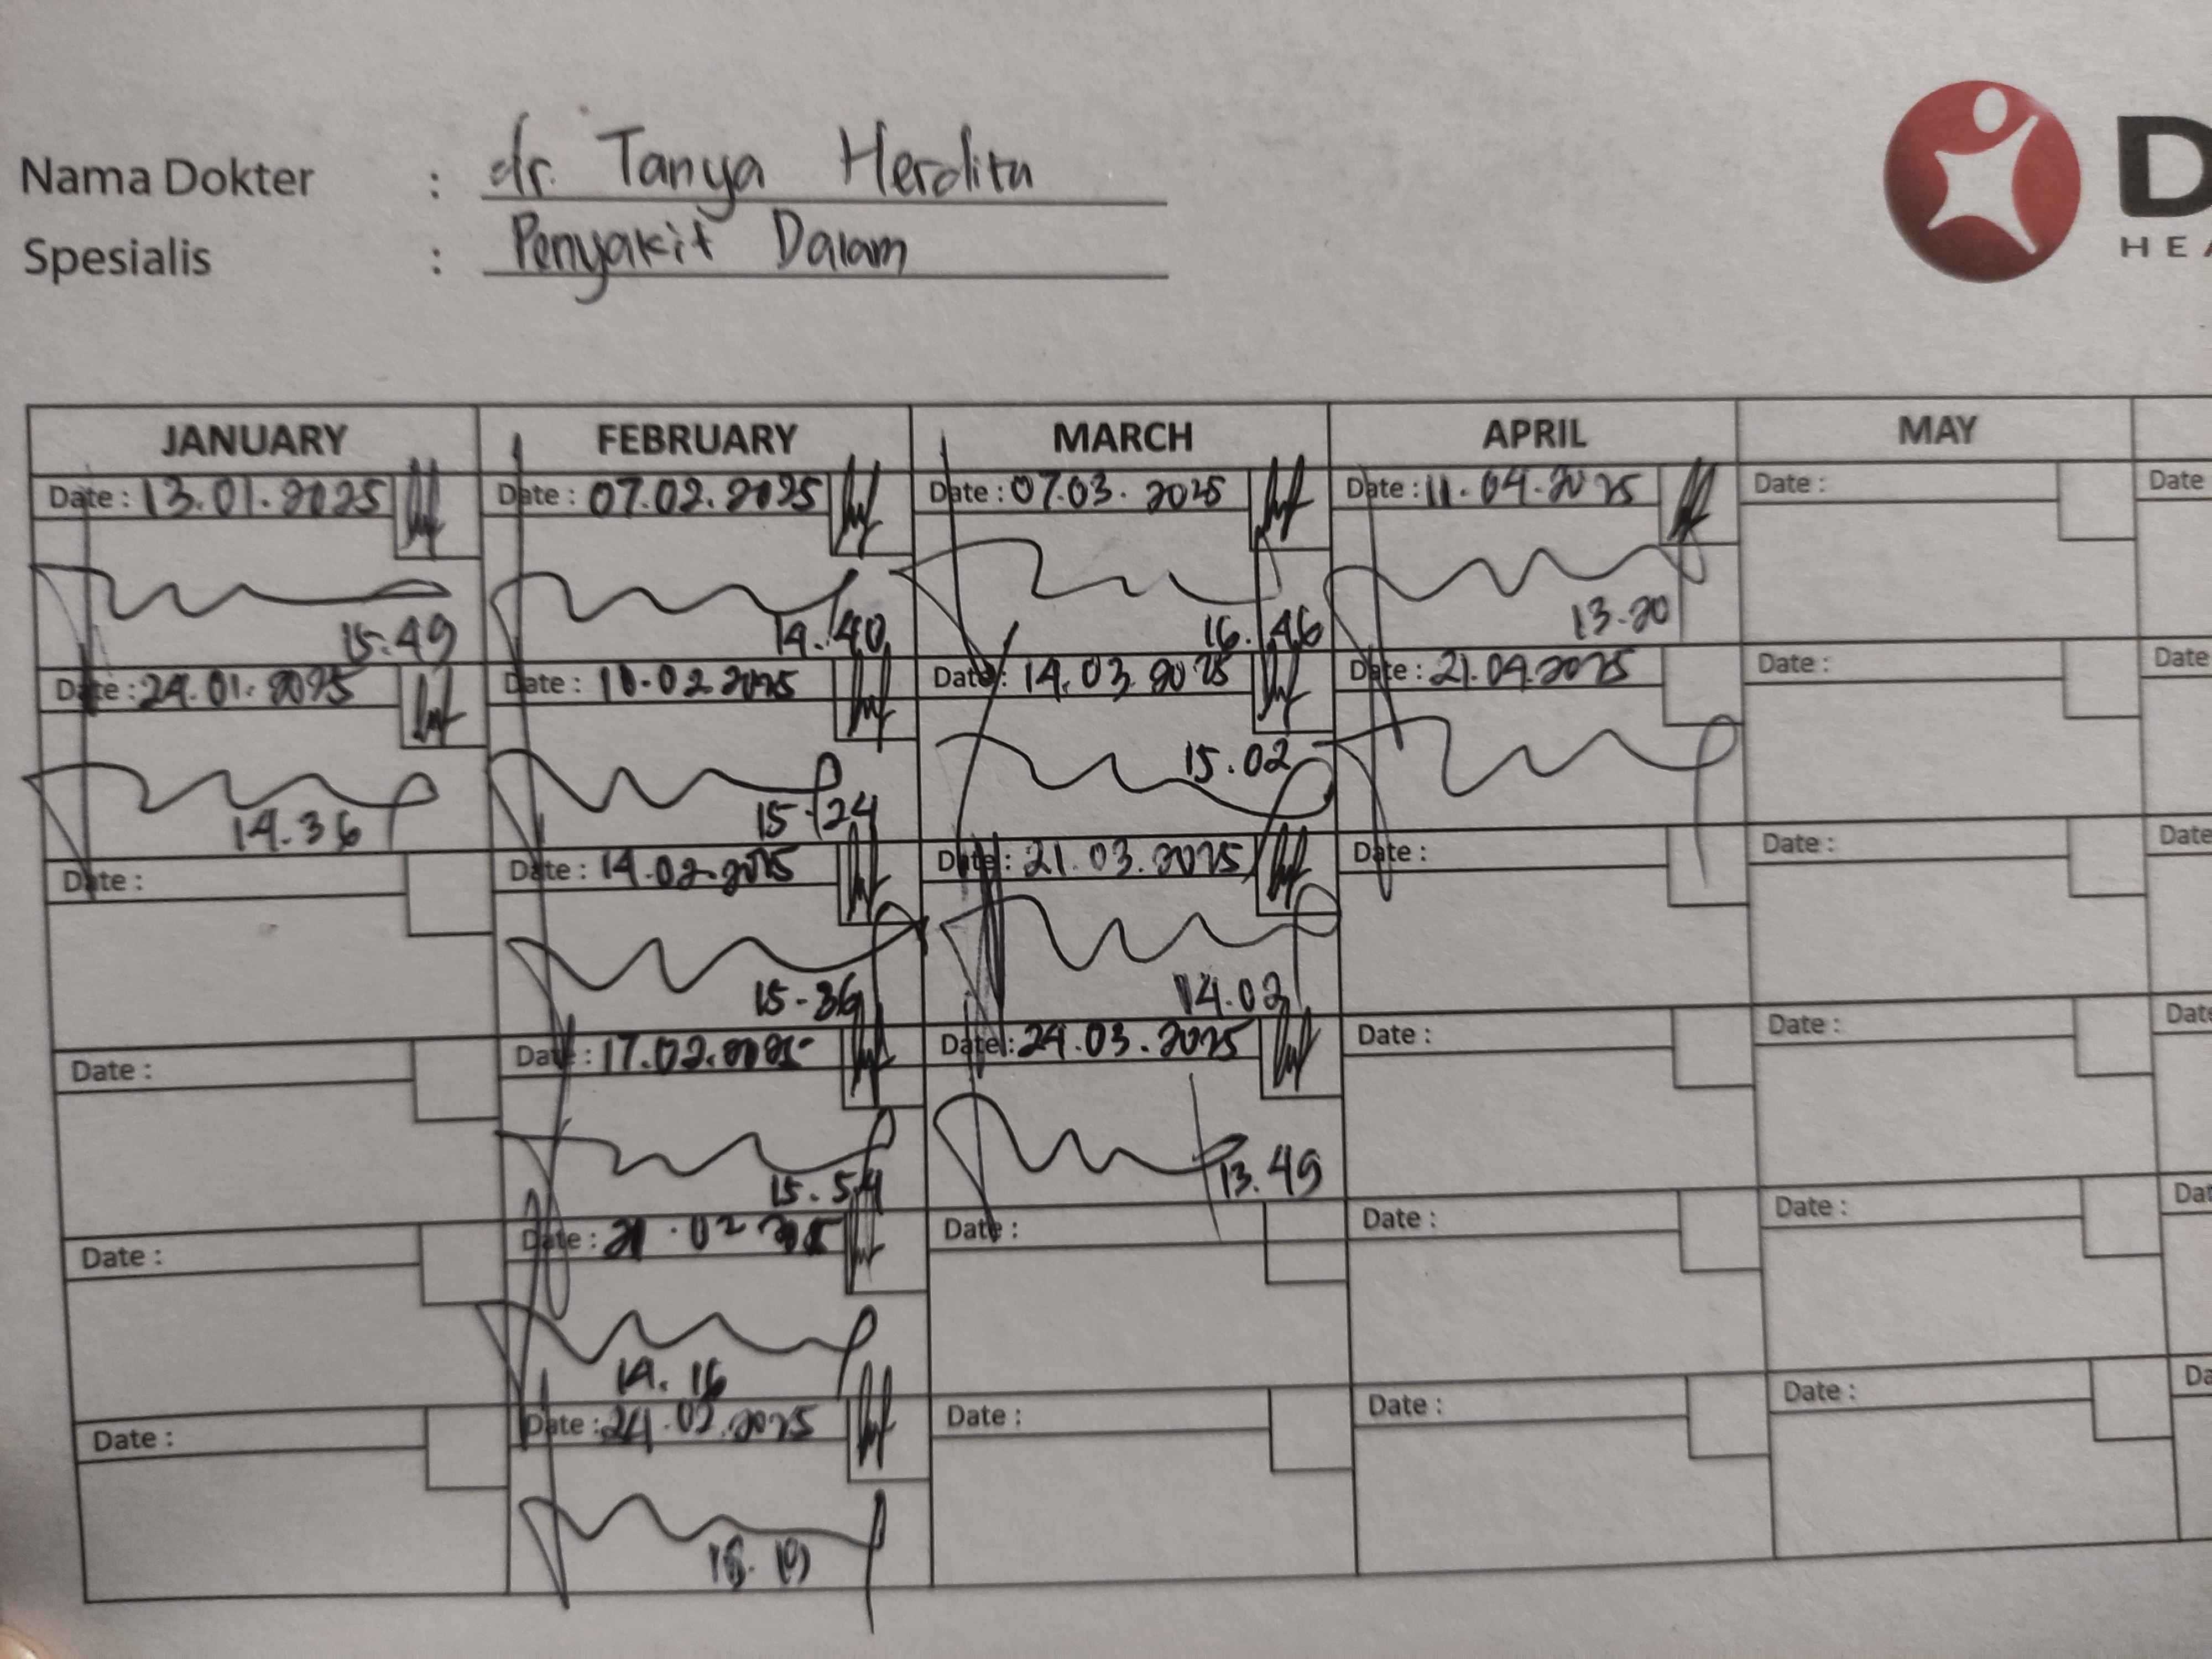 Nama Dokter : dr. Tanya Herdita
Spesialis : Penyakit Dalam
D
HEA
JANUARY FEBRUARY MARCH APRIL MAY
Date : 13.01.2025 Date : 07.02.2025 Date : 07.03.2025 Date : 11.04.2025 Date : Date
15.49 14.40 16.46 13.20
Date : 24.01.2025 Date : 10.02.2025 Date : 14.03.2025 Date : 21.04.2025 Date : Date
14.36 15.24 15.02
Date : Date : 14.02.2025 Date : 21.03.2025 Date : Date : Date
15.36 14.02
Date : Date : 17.02.2025 Date : 24.03.2025 Date : Date : Date
15.54 13.49
Date : Date : 21.02 Date : Date : Date : Dat
14.16
Date : Date : 24.02.2025 Date : Date : Date : Da